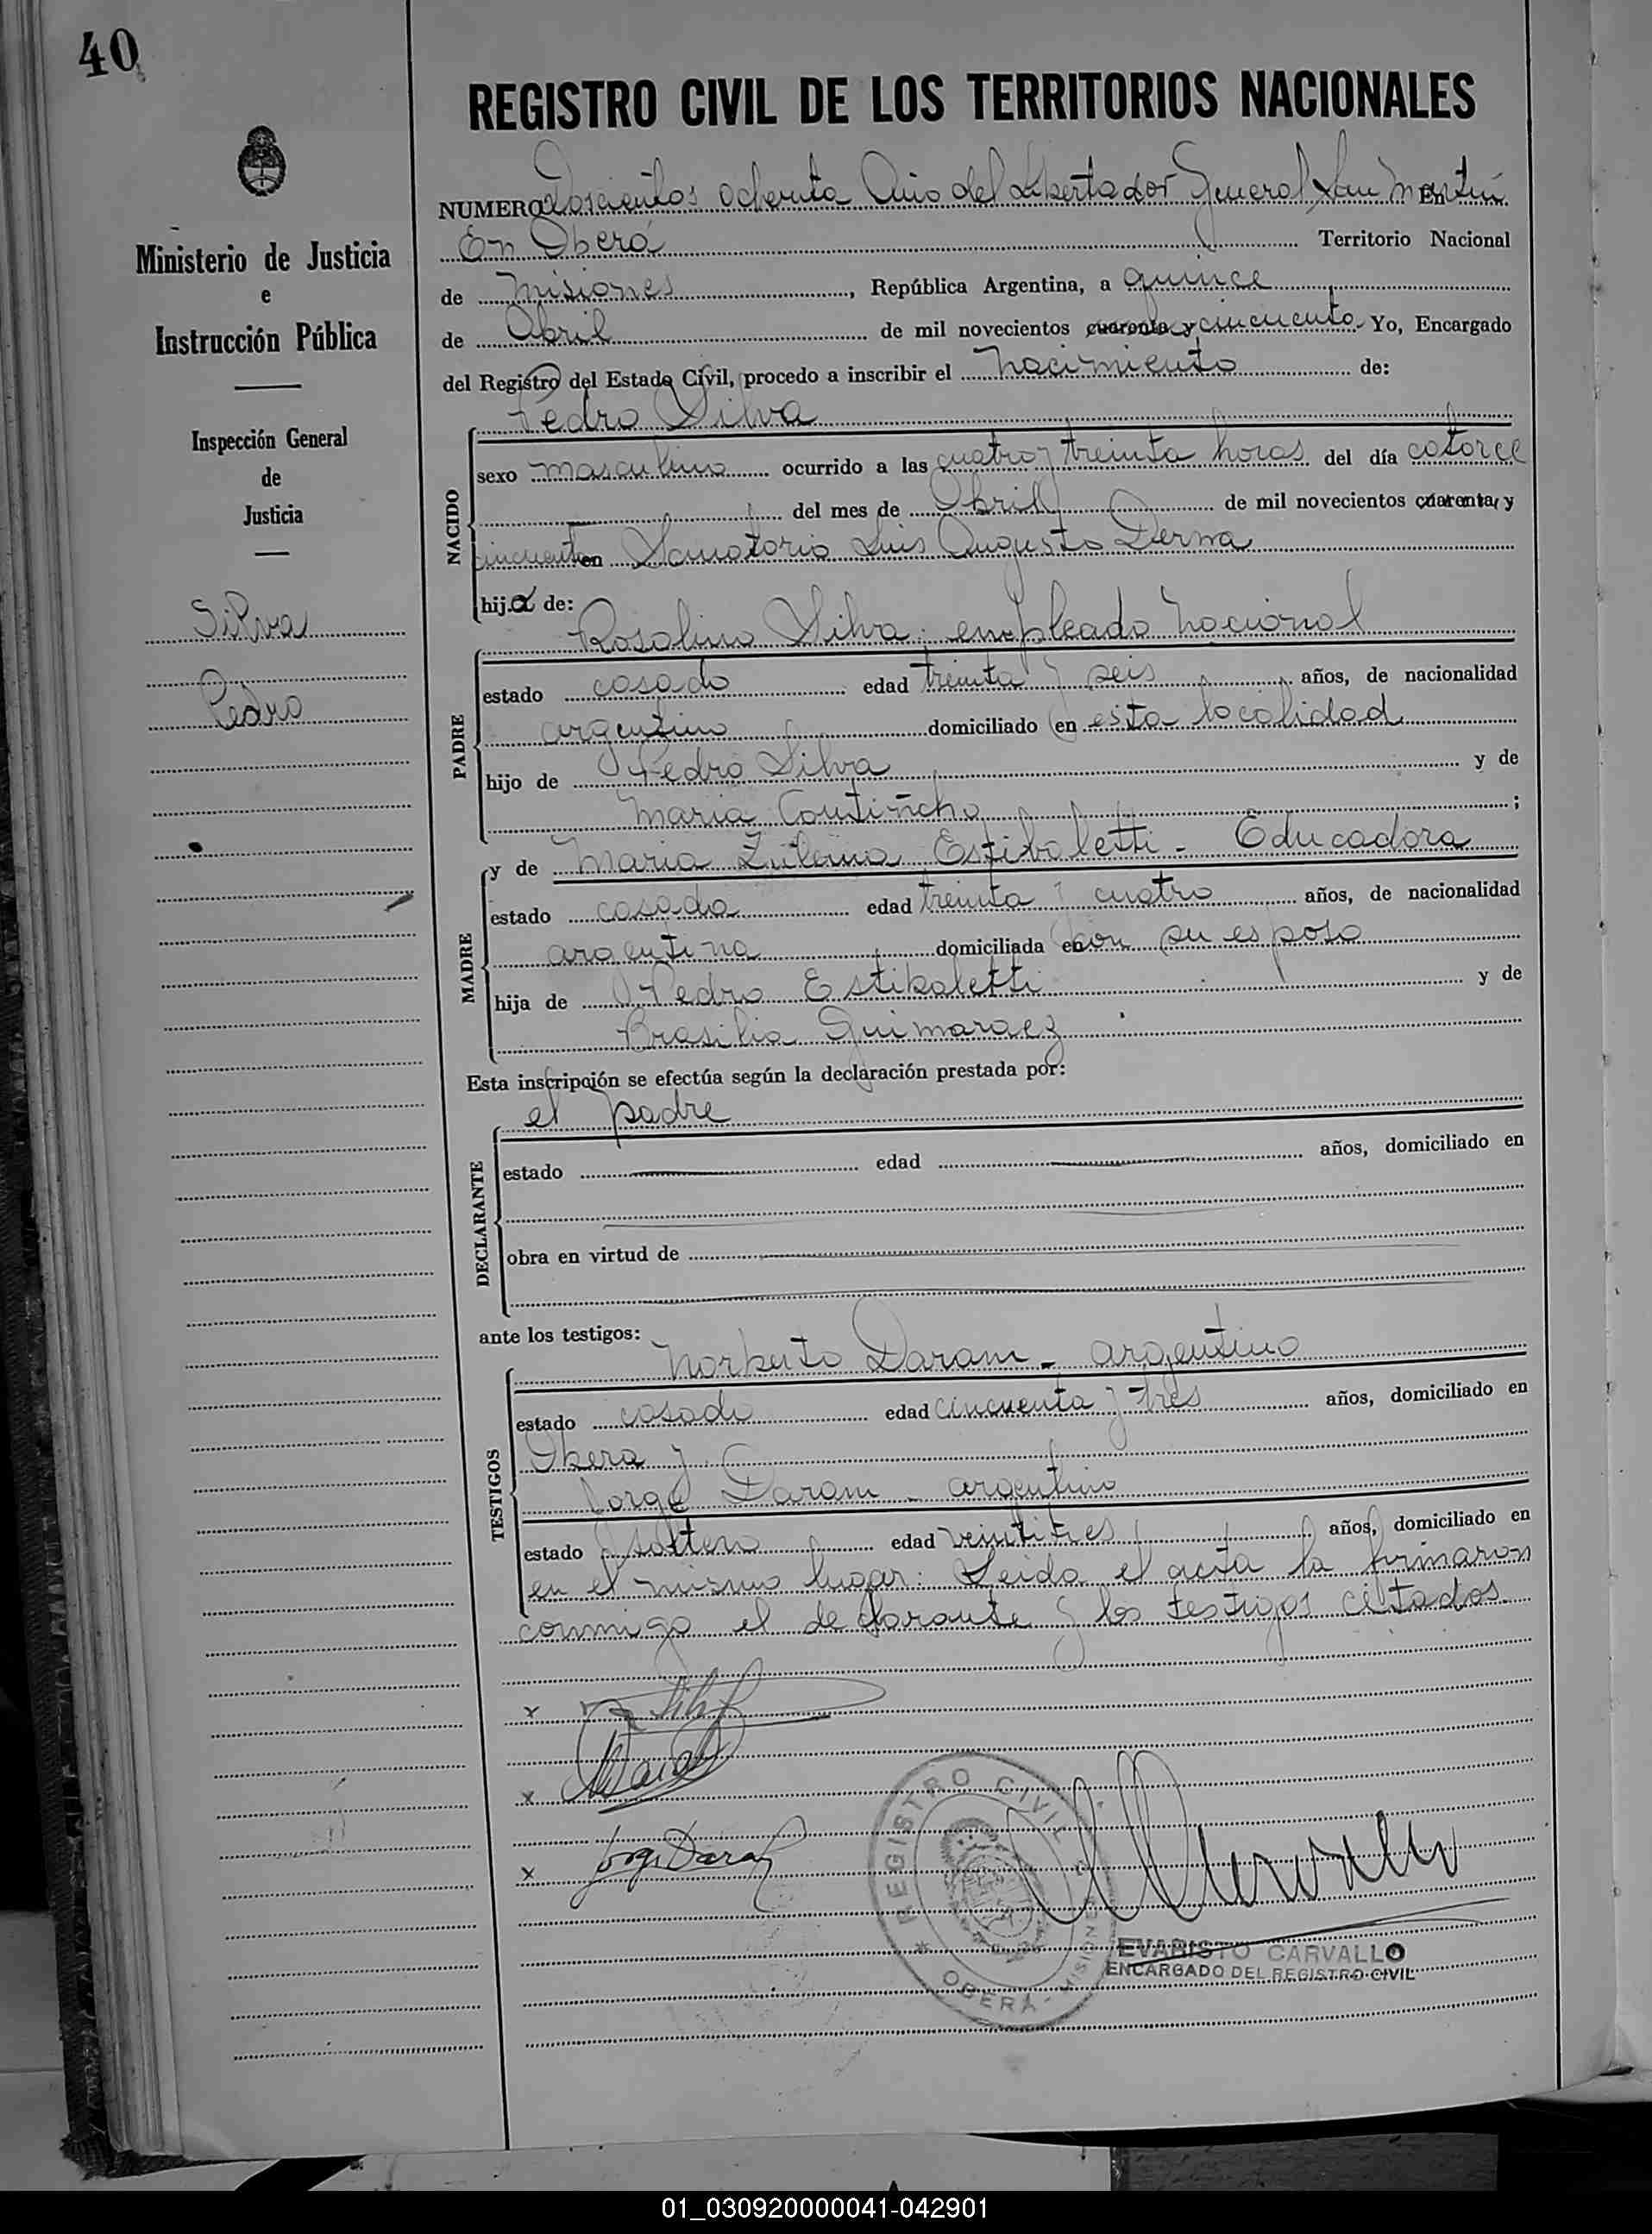 40
REGISTRO CIVIL DE LOS TERRITORIOS NACIONALES
NUMERO doscientos ochenta Año del Libertador General San Martín En
En Oberá Territorio Nacional
de Misiones, República Argentina, a quince
de Abril de mil novecientos cuarenta y cincuenta Yo, Encargado
del Registro del Estado Civil, procedo a inscribir el nacimiento de:
Pedro Silva
NACIDO
sexo masculino ocurrido a las cuatro y treinta horas del día catorce
del mes de Abril de mil novecientos cuarenta y
cincuenta en Sanatorio Luis Augusto Derna
hijo de:
PADRE
Rosalino Silva: empleado nacional
estado casado edad treinta y seis años, de nacionalidad
argentino domiciliado en esta localidad
hijo de Pedro Silva y de
Maria Coutiñcho ;
MADRE
y de Maria Zulema Estiboletti - Educadora
estado casada edad treinta y cuatro años, de nacionalidad
argentina domiciliada en con su esposo
hija de Pedro Estiboletti y de
Brasilia Guimaraez
Esta inscripción se efectúa según la declaración prestada por:
DECLARANTE
el padre
estado edad años, domiciliado en
obra en virtud de
ante los testigos:
TESTIGOS
Norberto Daram - argentino
estado casado edad cincuenta y tres años, domiciliado en
Obera y
Jorge Daram - argentino
estado soltero edad veintitres años, domiciliado en
en el mismo lugar: Leida el acta la firmaron
conmigo el declarante y los testigos citados.
x Silva
x
x Jorge Daram
REGISTRO CIVIL
OBERA - MISIONES
EVARISTO CARVALLO
ENCARGADO DEL REGISTRO CIVIL
Ministerio de Justicia
e
Instrucción Pública
Inspección General
de
Justicia
Silva
Pedro
01_030920000041-042901